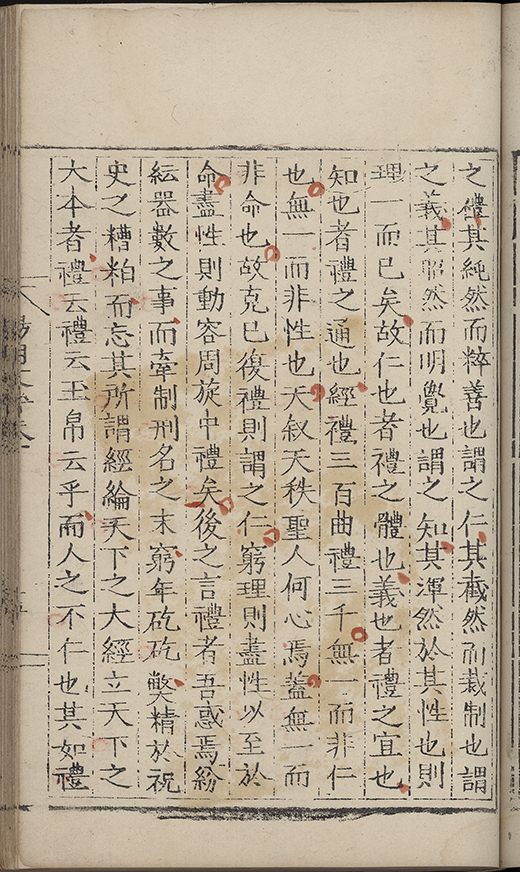 之禮其純然而粹善也謂之仁其截然而裁制也謂
之義其昭然而明覺也謂之知其渾然於其性也則
理一而已矣故仁也者禮之體也義也者禮之宜也
知也者禮之通也經禮三百曲禮三千無一而非仁
也無一而非性也天叙天秩聖人何心焉蓋無一而
非命也故克已復禮則謂之仁窮理則盡性以至於
命盡性則動容周旋中禮矣後之言禮者吾惑焉紛
紜器數之事而牽制刑名之末窮年矻矻弊精於祝
史之糟粕而忘其所謂經綸天下之大經立天下之
大本者禮云禮云玉帛云乎而人之不仁也其如禮